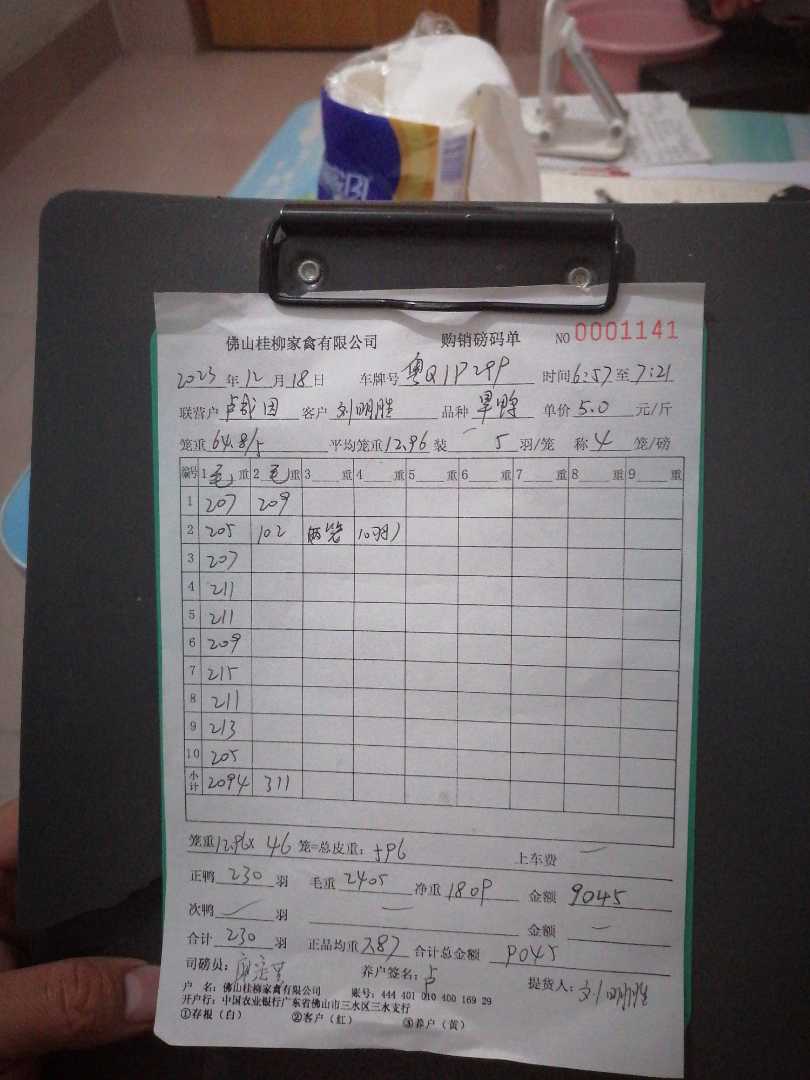 佛山桂柳家禽有限公司 购销磅码单 NO 0001141
2023年12月18日 车牌号 粤Q1P299 时间6:57至7:21
联营户 客户 刘明胜 品种 旱鸭 单价 5.0 元/斤
笼重 64.8/5 平均笼重12.96 装 5 羽/笼 称 4 笼/磅
编号 1毛重 2毛重 3 重 4 重 5 重 6 重 7 重 8 重 9 重
1 207 209
2 205 102 两笼 10羽)
3 207
4 211
5 211
6 209
7 215
8 211
9 213
10 205
小计 2094 311
笼重12.96× 46 笼=总皮重: 596 上车费 —
正鸭 230 羽 毛重 2405 净重 1809 金额 9045
次鸭 羽 — 金额 —
合计 230 羽 正品均重 7.87 合计总金额 9045
司磅员: 养户签名: 提货人: 刘明胜
户 名: 佛山桂柳家禽有限公司 账号: 444 401 010 400 169 29
开户行: 中国农业银行广东省佛山市三水区三水支行
①存根(白) ②客户(红) ③养户(黄)